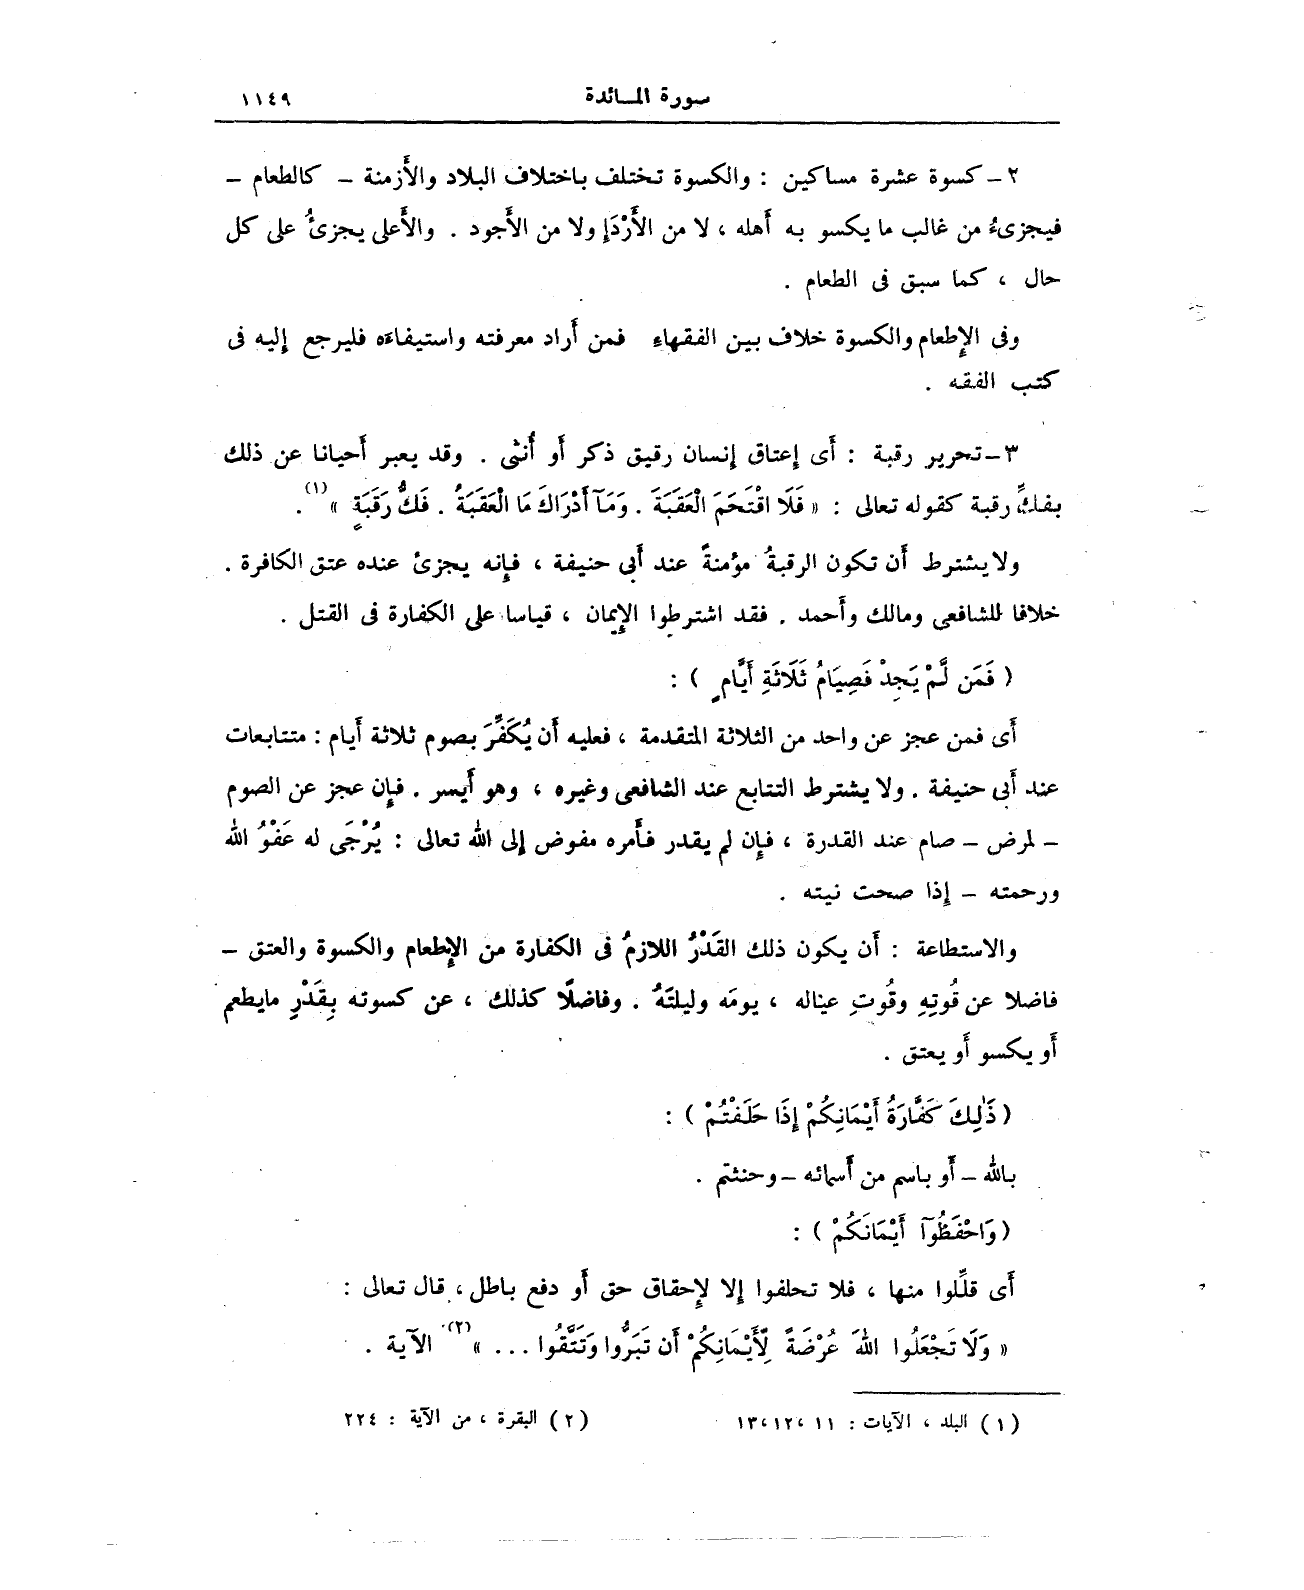 سورة المائدة ١١٤٩
٢ – كسوة عشرة مساكين : والكسوة تختلف باختلاف البلاد والأَزمنة – كالطعام –
فيجزىءُ من غالب ما يكسو به أَهله ، لا من الأَرْدَإِ ولا من الأَجود . والأَعلى يجزئُ على كل
حال ، كما سبق فى الطعام .
وفى الإِطعام والكسوة خلاف بين الفقهاءِ فمن أَراد معرفته واستيفاءَه فليرجع إِليه فى
كتب الفقه .
٣ – تحرير رقبة : أَى إِعتاق إِنسان رقيق ذكر أَو أُنثى . وقد يعبر أَحيانا عن ذلك
بفكِّ رقبة كقوله تعالى : « فَلَا اقْتَحَمَ الْعَقَبَةَ . وَمَآ أَدْرَاكَ مَا الْعَقَبَةُ . فَكُّ رَقَبَةٍ » (١) .
ولا يشترط أَن تكون الرقبةُ مؤمنةً عند أَبى حنيفة ، فإِنه يجزئ عنده عتق الكافرة .
خلافا للشافعى ومالك وأَحمد . فقد اشترطوا الإِيمان ، قياسا على الكفارة فى القتل .
( فَمَن لَّمْ يَجِدْ فَصِيَامُ ثَلَاثَةِ أَيَّامٍ ) :
أَى فمن عجز عن واحد من الثلاثة المتقدمة ، فعليه أَن يُكَفِّرَ بصوم ثلاثة أَيام : متتابعات
عند أَبى حنيفة . ولا يشترط التتابع عند الشافعى وغيره ، وهو أَيسر . فإِن عجز عن الصوم
– لمرض – صام عند القدرة ، فإِن لم يقدر فأَمره مفوض إِلى الله تعالى : يُرْجَى له عَفْوُ الله
ورحمته – إِذا صحت نيته .
والاستطاعة : أَن يكون ذلك القَدْرُ اللازمُ فى الكفارة من الإِطعام والكسوة والعتق –
فاضلا عن قُوتِهِ وقُوتِ عياله ، يومَه وليلتَهُ . وفاضلًا كذلك ، عن كسوته بِقَدْرِ مايطعم
أَو يكسو أَو يعتق .
( ذَٰلِكَ كَفَّارَةُ أَيْمَانِكُمْ إِذَا حَلَفْتُمْ ) :
بالله – أَو باسم من أَسمائه – وحنثتم .
( وَاحْفَظُوٓا أَيْمَانَكُمْ ) :
أَى قلِّلوا منها ، فلا تحلفوا إِلا لإِحقاق حق أَو دفع باطل ، قال تعالى :
« وَلَا تَجْعَلُوا اللهَ عُرْضَةً لِّأَيْمَانِكُمْ أَن تَبَرُّوا وَتَتَّقُوا ... » (٢) الآية .
(١) البلد ، الآيات : ١١ ،١٢ ،١٣ (٢) البقرة ، من الآية : ٢٢٤